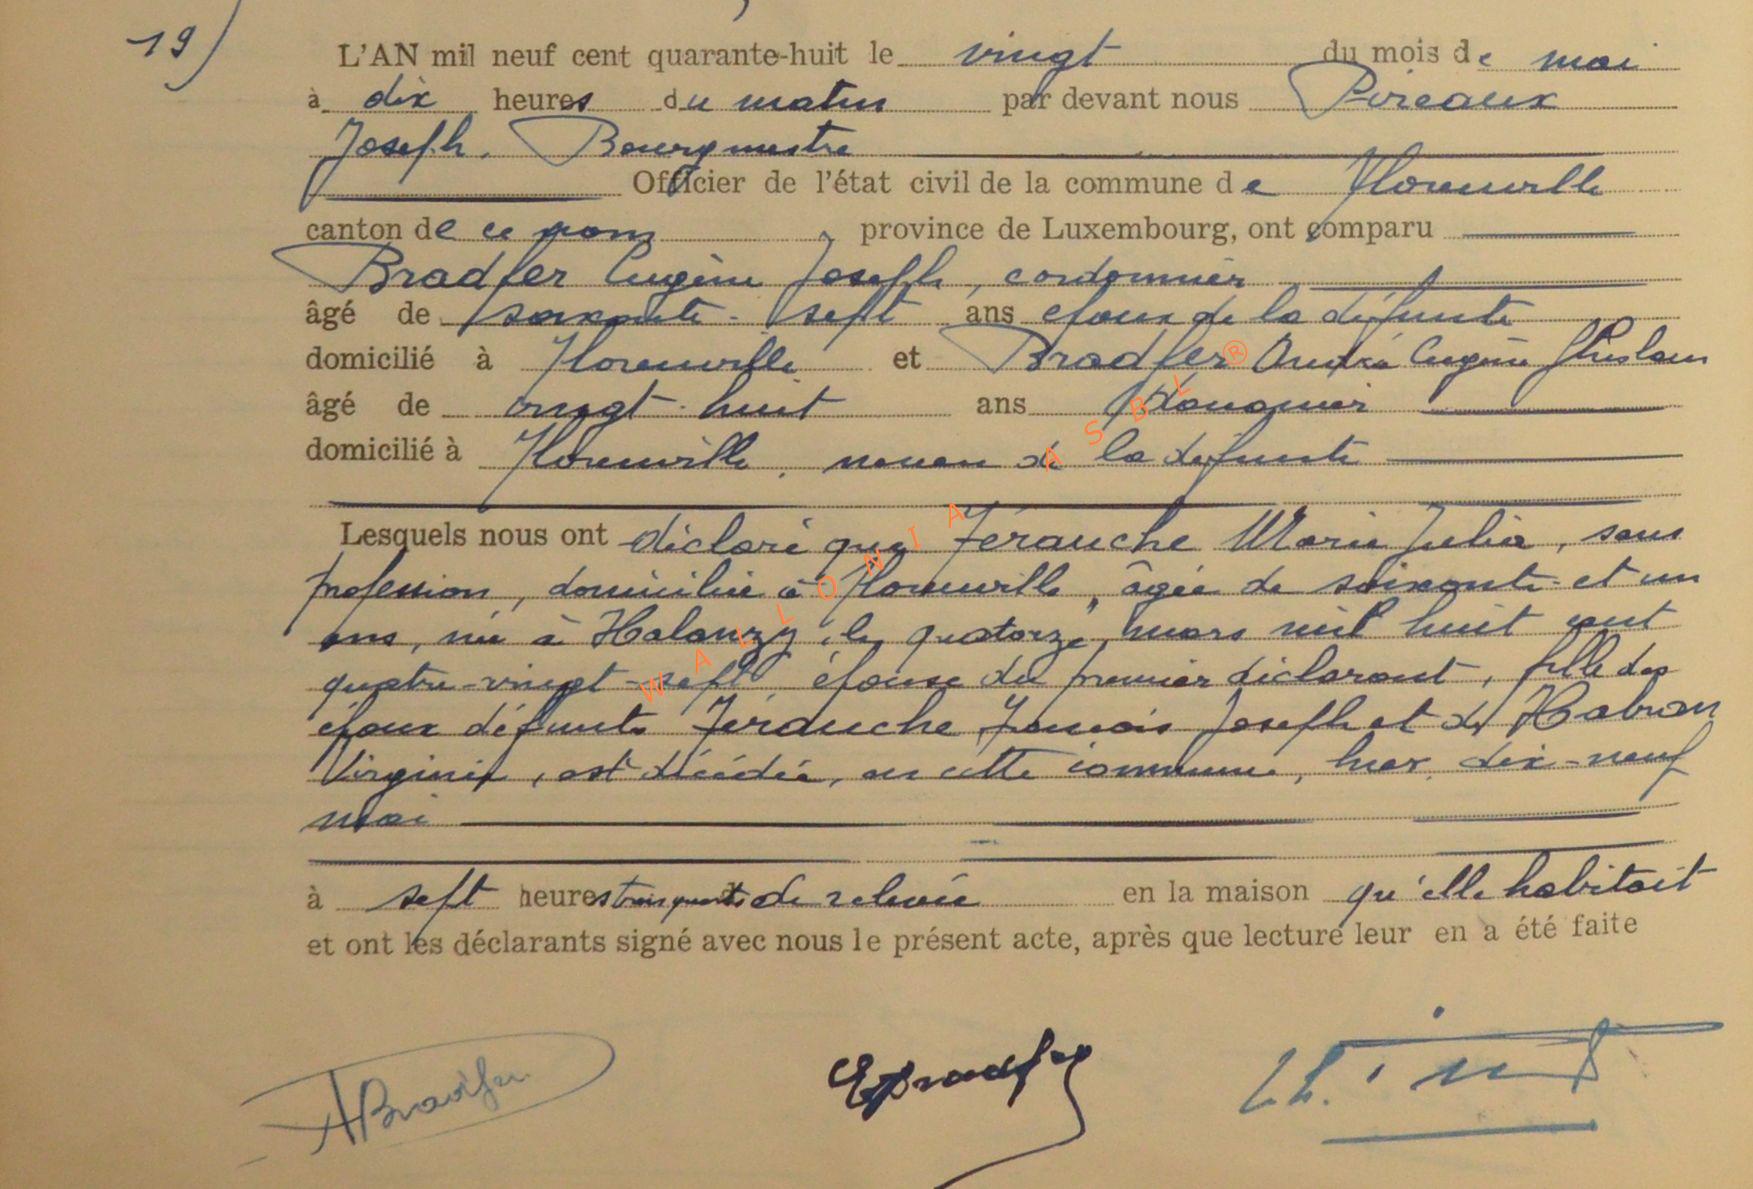 19)
L'AN mil neuf cent quarante-huit le vingt du mois de mai
à dix heures du matin par devant nous Pireaux
Joseph, Bourgmestre
Officier de l'état civil de la commune de Florenville
canton de ce nom, province de Luxembourg, ont comparu
Bradfer Eugène Joseph, cordonnier
âgé de soixante-sept ans époux de la défunte
domicilié à Florenville et Bradfer André Eugène Ghislain
âgé de vingt-huit ans douanier
domicilié à Florenville, neveu de la défunte
Lesquels nous ont déclaré que Férauche Marie Julia, sans
profession, domiciliée à Florenville, âgée de soixante et un
ans, née à Halanzy, le quatorze mars mil huit cent
quatre-vingt-sept, épouse du premier déclarant, fille des
époux défunts Férauche François Joseph et de Habran
Virginie, est décédée, en cette commune, hier, dix-neuf
mai
à sept heures trois quarts de relevée en la maison qu'elle habitait
et ont les déclarants signé avec nous le présent acte, après que lecture leur en a été faite
ABradfer
EBradfer
WALLONIA ASBL®